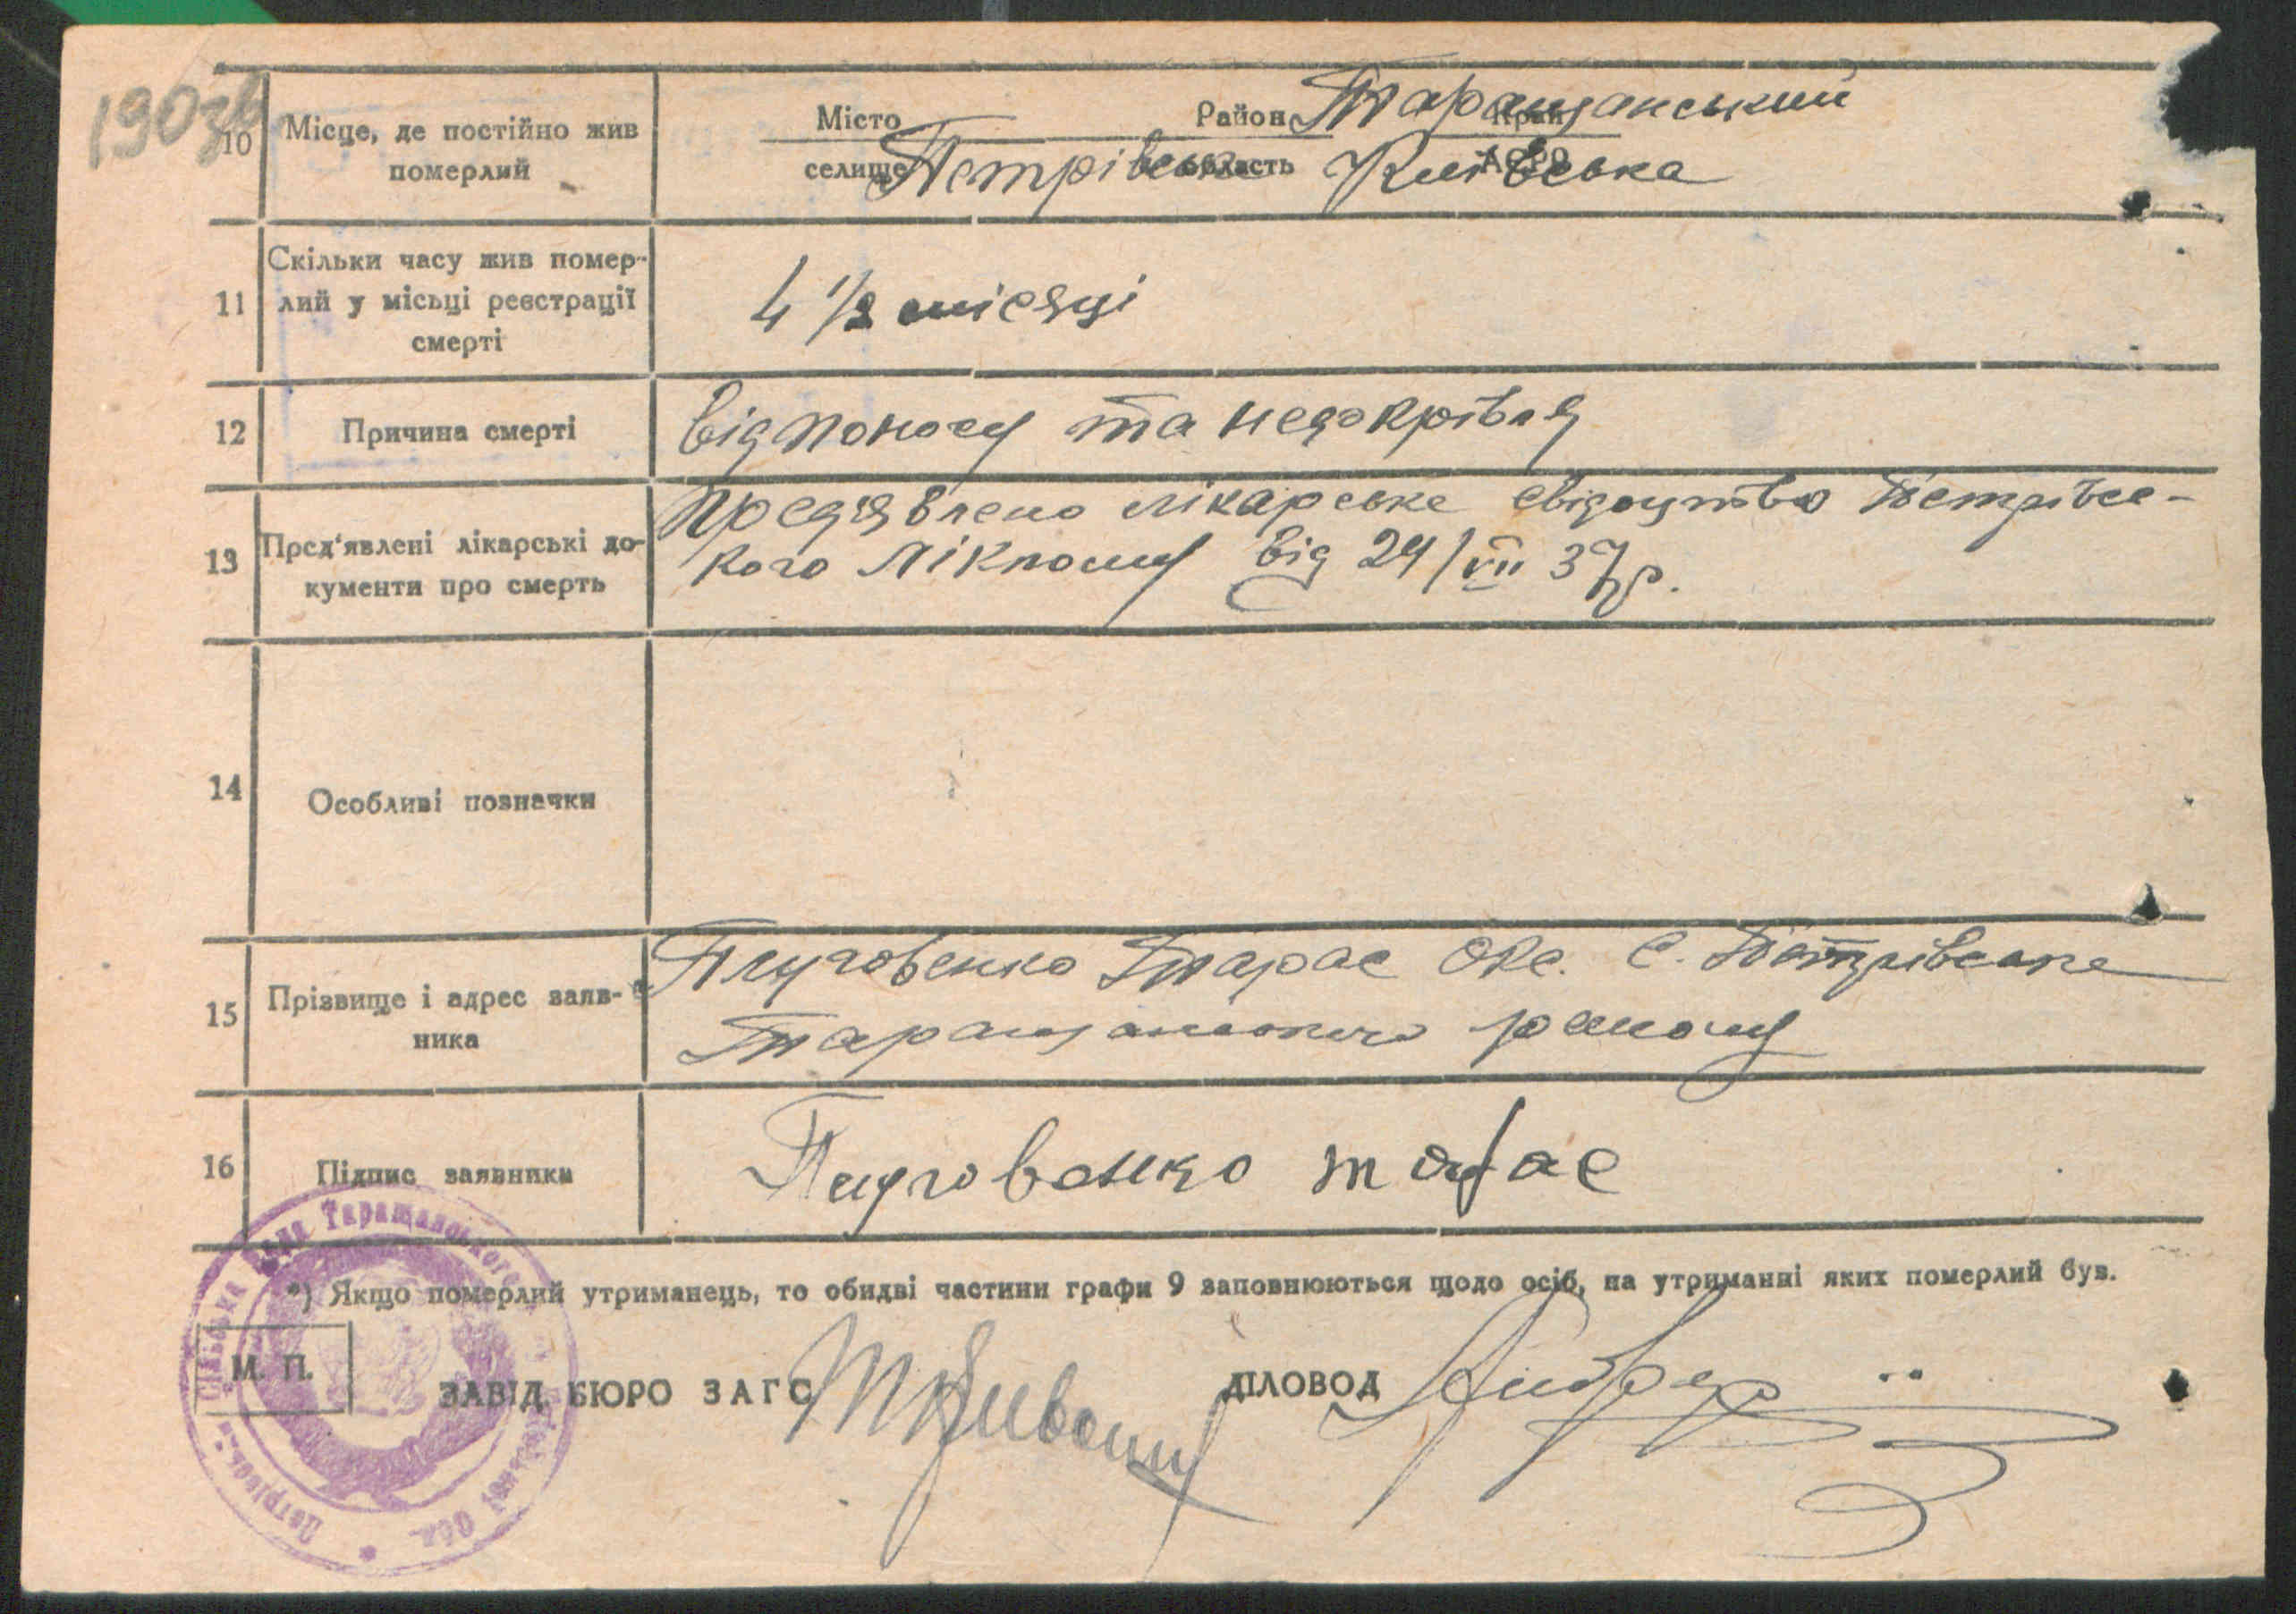 190зв
10 Місце, де постійно жив
померлий
Місто Район Таращанський Край
селище Петрівське область Київська АСРР
11 Скільки часу жив помер-
лий у місьці реєстрації
смерті
4 1/2 місяці
12 Причина смерті
від поносу та недокрівля
13 Пред'явлені лікарські до-
кументи про смерть
Предявлено лікарське свідоцтво Петрівсь-
кого Лікпому від 24/VII 37р.
14 Особливі позначки
15 Прізвище і адрес заяв-
ника
Пуговенко Тарас с. Петрівське
Таращанського району
16 Підпис заявника
Пуговенко тарас
*) Якщо померлий утриманець, то обидві частини графи 9 заповнюються щодо осіб, на утриманні яких померлий був.
М. П.
ЗАВІД БЮРО ЗАГС
ДІЛОВОД
Петрівська Сільська Рада Таращанського Обл.